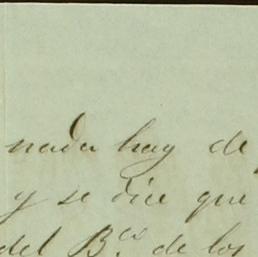 nada hay de
y se dice que
del B.co de los